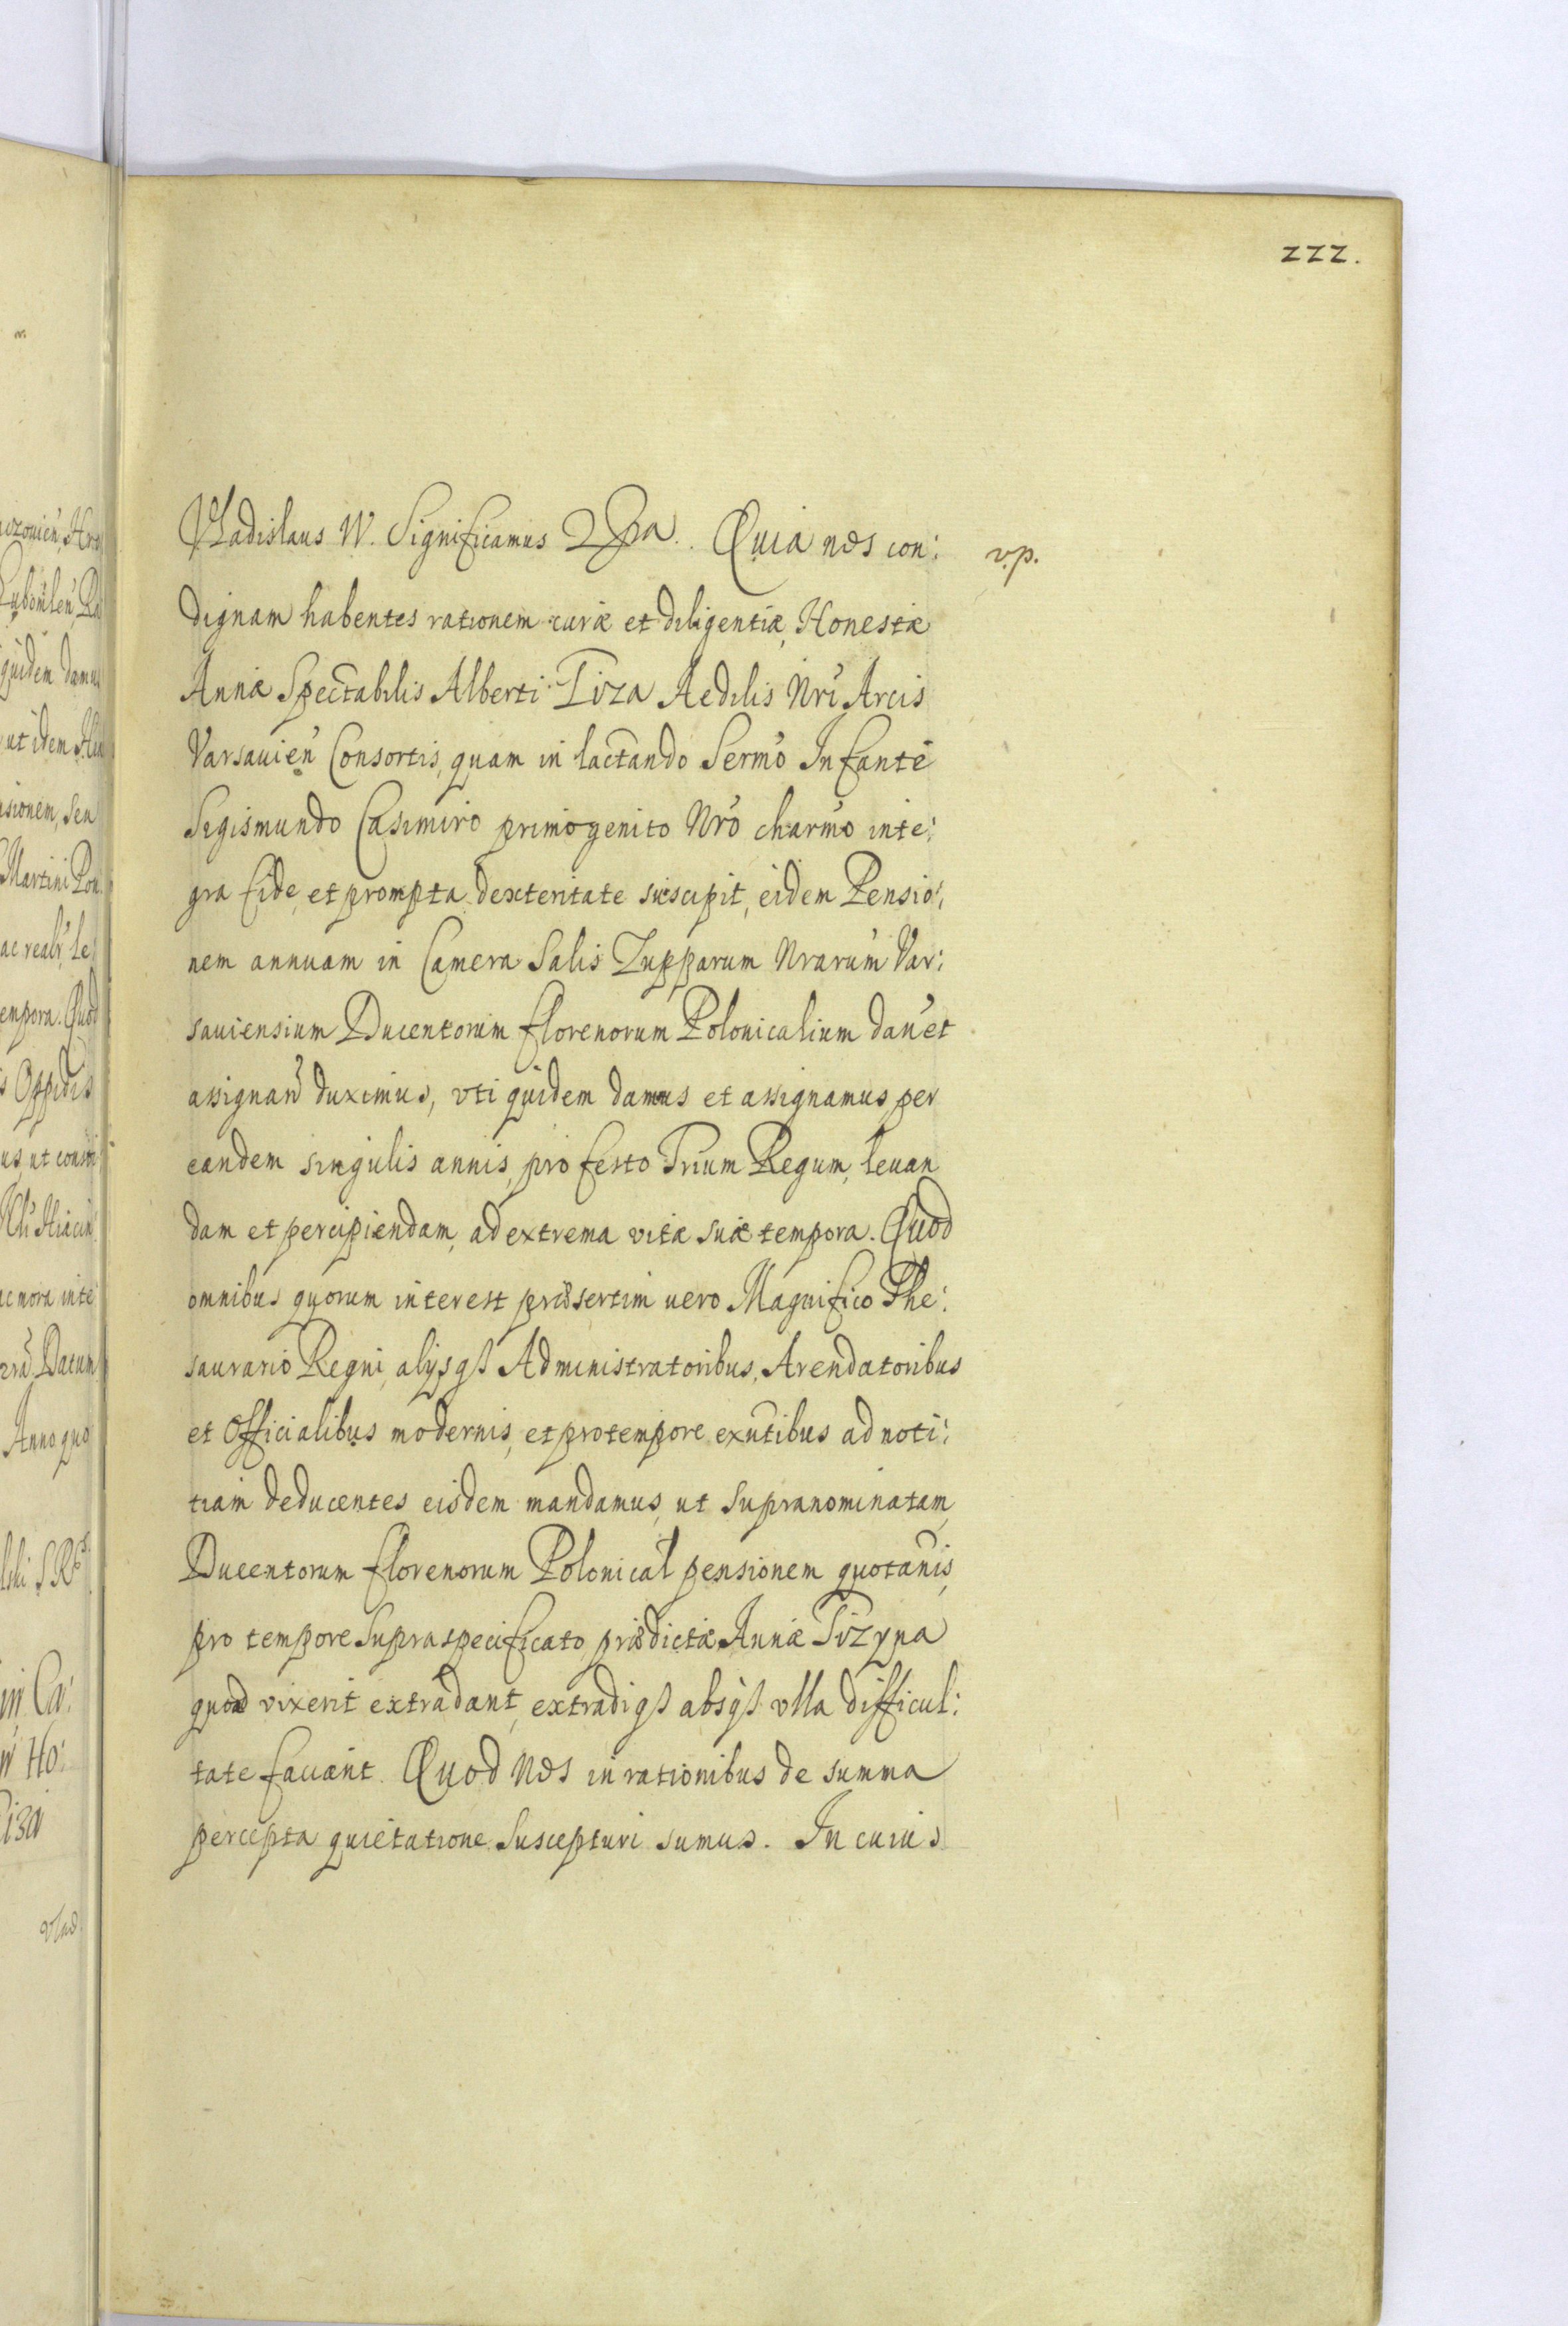 222.
Vladislaus IV. Significamus Quia nos con:
v.p.
dignam habentes rationem curæ et diligentiæ, Honestæ
Annæ Spectabilis Alberti Tiza Aedilis Nri Arcis
Varsauien Consortis, quam in lactando Sermo Infante
Sigismundo Casimiro primogenito Nro charmo inte:
gra fide, et prompta dexteritate suscepit, eidem Pensio:
nem annuam in Camera Salis Zupparum Nrarum Var:
sauiensium Ducentorum florenorum Polonicalium dan et
assignan duximus, vti quidem damus et assignamus per
eandem singulis annis, pro festo Trium Regum, leuan
dam et percipiendam, ad extrema vitæ suæ tempora. Quod
omnibus quorum interest præsertim uero Magnifico The:
saurario Regni, alijsqȝ Administratoribus, Arendatoribus
et Officialibus modernis, et pro tempore exntibus ad noti:
tiam deducentes eisdem mandamus, ut supranominatam
Ducentorum florenorum Polonical pensionem quotanis,
pro tempore supraspecificato, prædictæ Annæ Tizyna
quoad vixerit extradant, extradiqȝ absqȝ vlla difficul:
tate faciant. Quod Nos in rationibus de summa
percepta quietatione suscepturi sumus. In cuius